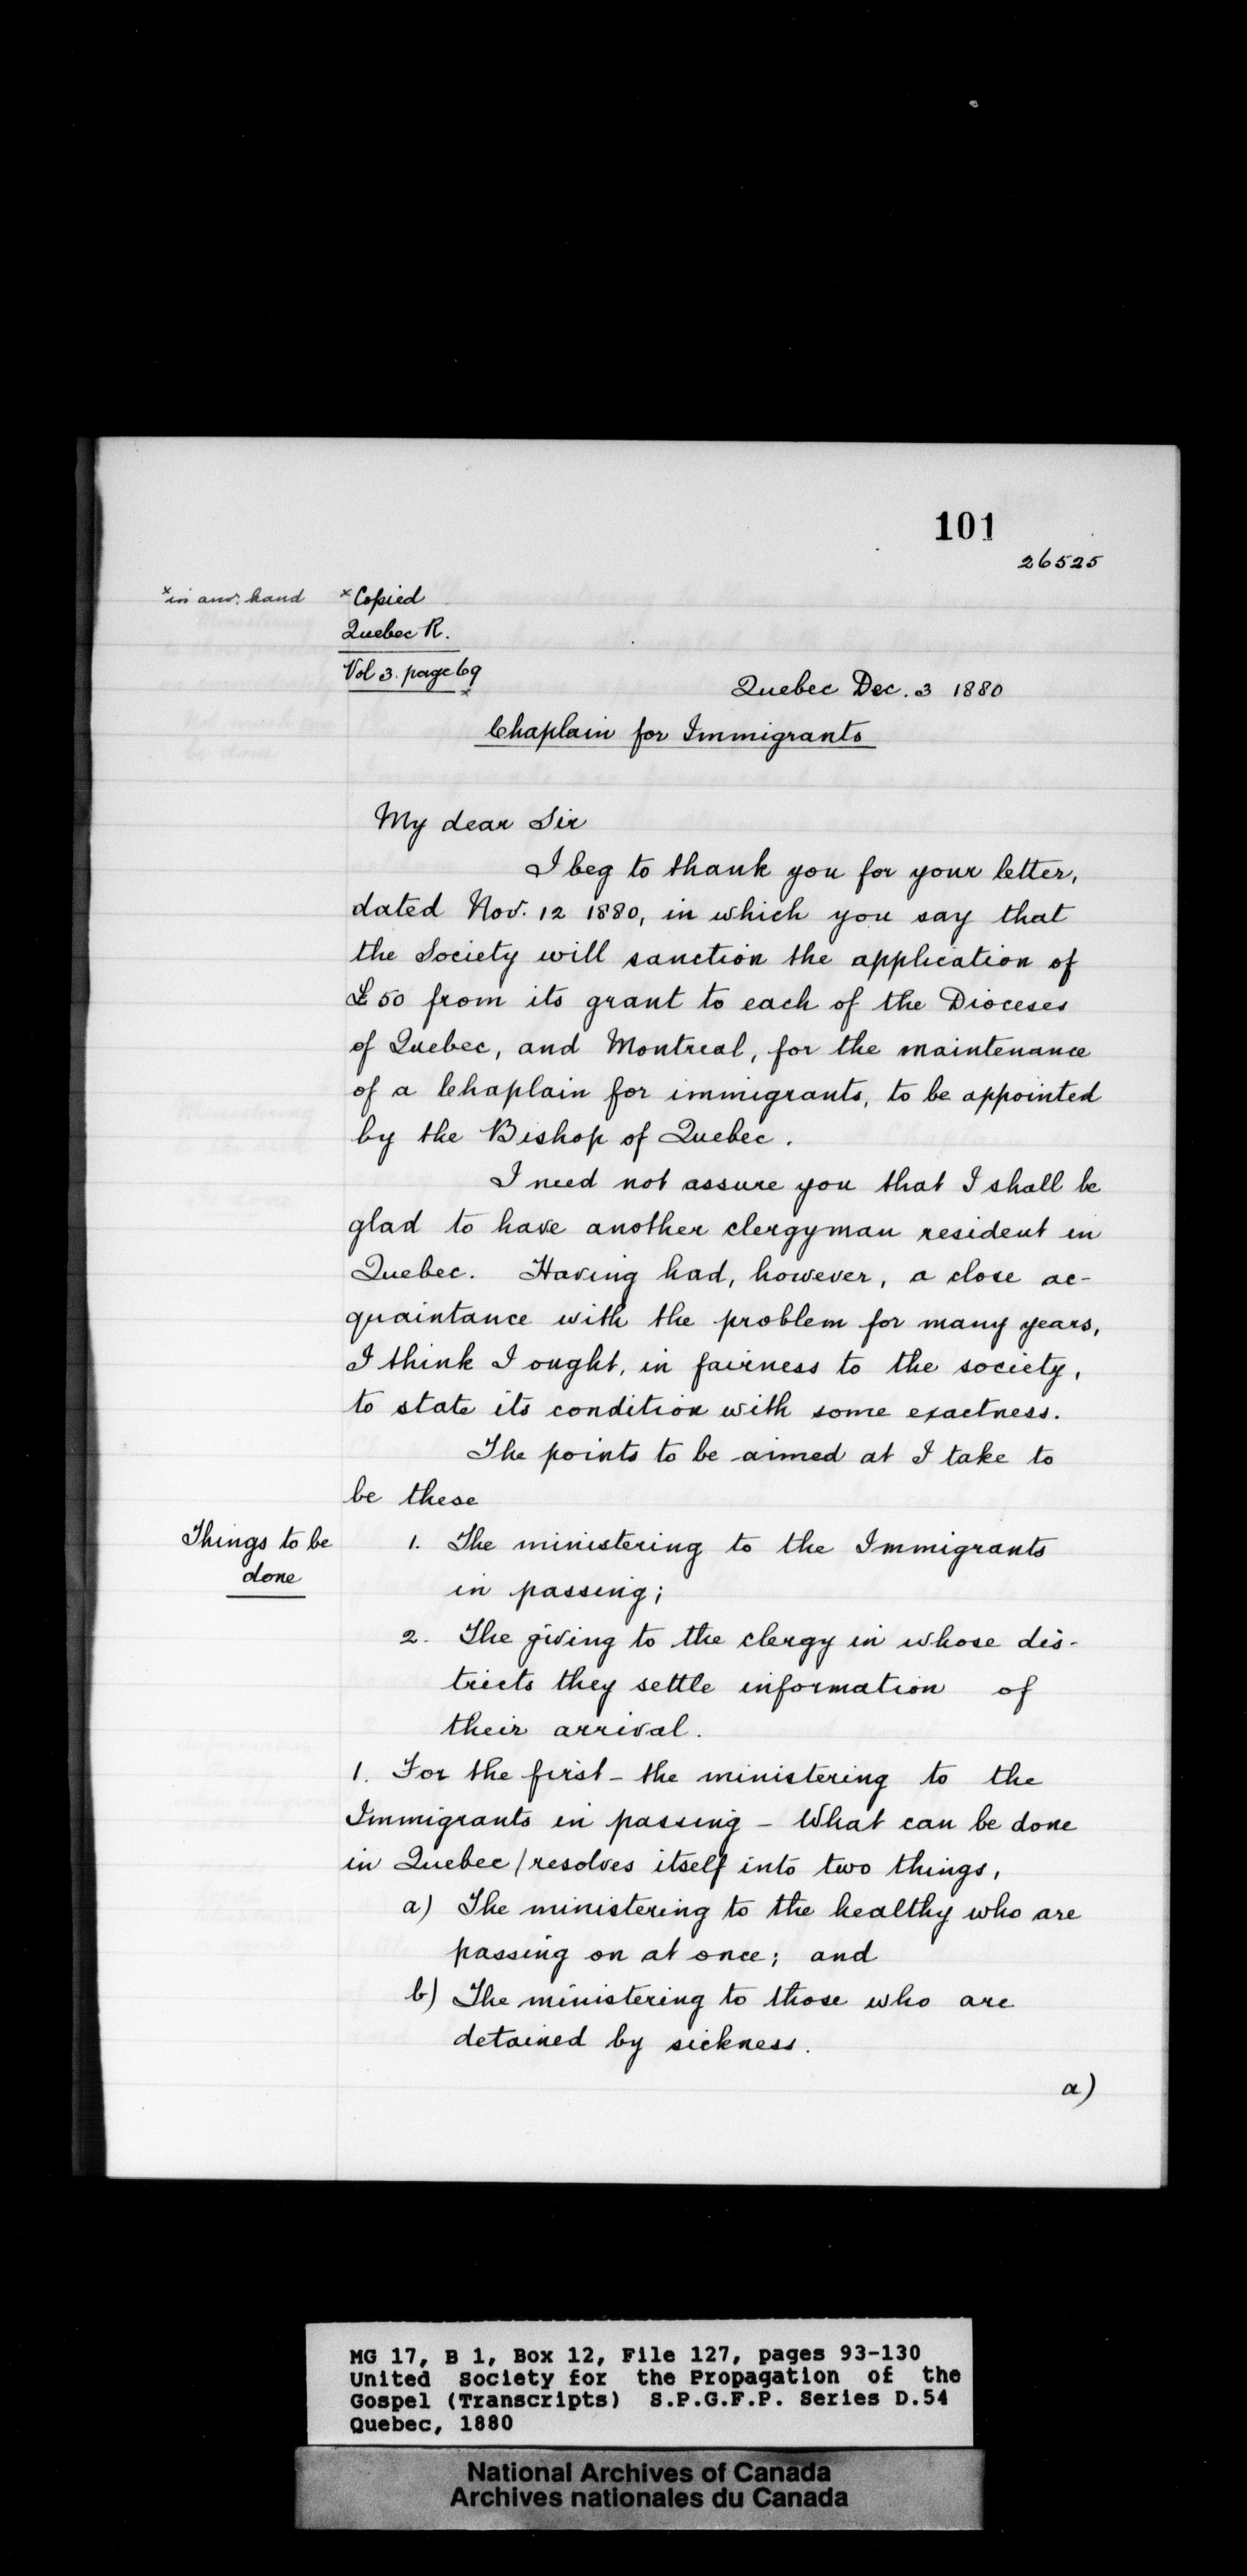 101
26525
x in anor. hand
x Copied
Quebec R.
Vol 3. page 69
x
Quebec Dec. 3 1880
Chaplain for Immigrants
My dear Sir
I beg to thank you for your letter,
dated Nov. 12 1880, in which you say that
the Society will sanction the application of
£50 from its grant to each of the Dioceses
of Quebec, and Montreal, for the maintenance
of a Chaplain for immigrants, to be appointed
by the Bishop of Quebec.
I need not assure you that I shall be
glad to have another clergyman resident in
Quebec. Having had, however, a close ac-
quaintance with the problem for many years,
I think I ought, in fairness to the society,
to state its condition with some exactness.
The points to be aimed at I take to
be these
Things to be
done
1. The ministering to the Immigrants
in passing;
2. The giving to the clergy in whose dis-
tricts they settle information of
their arrival.
1. For the first - the ministering to the
Immigrants in passing - What can be done
in Quebec / resolves itself into two things,
a) The ministering to the healthy who are
passing on at once; and
b) The ministering to those who are
detained by sickness.
a)
MG 17, B 1, Box 12, File 127, pages 93-130
United Society for the Propagation of the
Gospel (Transcripts) S.P.G.F.P. Series D.54
Quebec, 1880
National Archives of Canada
Archives nationales du Canada